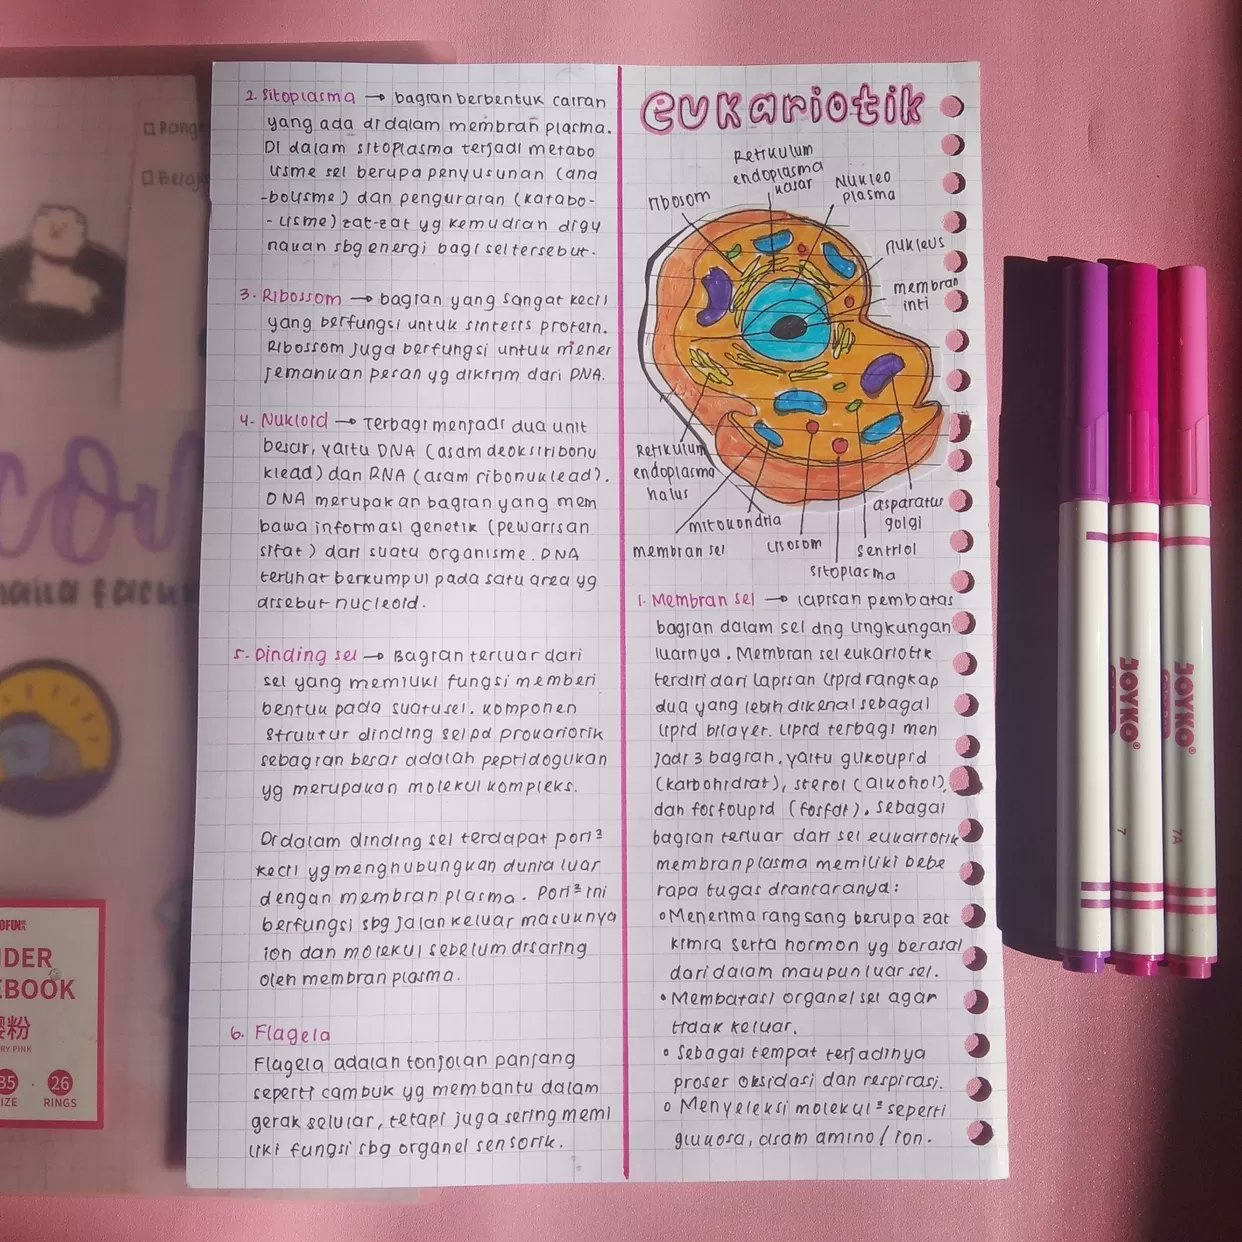 2. Sitoplasma → bagian berbentuk cairan
yang ada didalam membran plasma.
Di dalam sitoplasma terjadi metabo
lisme sel berupa penyusunan (ana
-bolisme) dan penguraian (katabo-
-lisme) zat-zat yg kemudian digu
nakan sbg energi bagi sel tersebut.
3. Ribossom → bagian yang sangat kecil
yang berfungsi untuk sintesis protein.
Ribossom juga berfungsi untuk mener
jemahkan pesan yg dikirim dari DNA.
4. Nukloid → Terbagi menjadi dua unit
besar, yaitu DNA (asam deoksiribonu
klead) dan RNA (asam ribonuklead).
DNA merupakan bagian yang mem
bawa informasi genetik (pewarisan
sifat) dari suatu organisme. DNA
terlihat berkumpul pada satu area yg
disebut nucleoid.
5. Dinding sel → Bagian terluar dari
sel yang memiliki fungsi memberi
bentuk pada suatu sel. Komponen
struktur dinding sel pd prokariorik
sebagian besar adalah peptidoglikan
yg merupakan molekul kompleks.
Didalam dinding sel terdapat pori²
kecil yg menghubungkan dunia luar
dengan membran plasma. Pori² ini
berfungsi sbg jalan keluar masuknya
ion dan molekul sebelum disaring
oleh membran plasma.
6. Flagela
Flagela adalah tonjolan panjang
seperti cambuk yg membantu dalam
gerak selular, tetapi juga sering memi
liki fungsi sbg organel sensorik.
eukariotik
Retikulum
endoplasma
kasar
Nukleo
plasma
ribosom
nukleus
membran
inti
Retikulum
endoplasma
halus
mitokondria
membran sel
lisosom
sitoplasma
sentriol
asparatus
golgi
1. Membran sel → lapisan pembatas
bagian dalam sel dng lingkungan
luarnya. Membran sel eukariotik
terdiri dari lapisan lipid rangkap
dua yang lebih dikenal sebagai
lipid bilayer. Lipid terbagi men
jadi 3 bagian. yaitu glikolipid
(karbohidrat), sterol (alkohol),
dan fosfolipid (fosfat). Sebagai
bagian terluar dari sel eukariotik
membran plasma memiliki bebe
rapa tugas diantaranya:
• Menerima rangsang berupa zat
kimia serta hormon yg berasal
dari dalam maupun luar sel.
• Membatasi organel sel agar
tidak keluar.
• Sebagai tempat terjadinya
proser oksidasi dan respirasi.
• Menyeleksi molekul² seperti
glukosa, asam amino/ion.
JOYKO®
7
JOYKO®
7A
NDER
EBOOK
26
RINGS